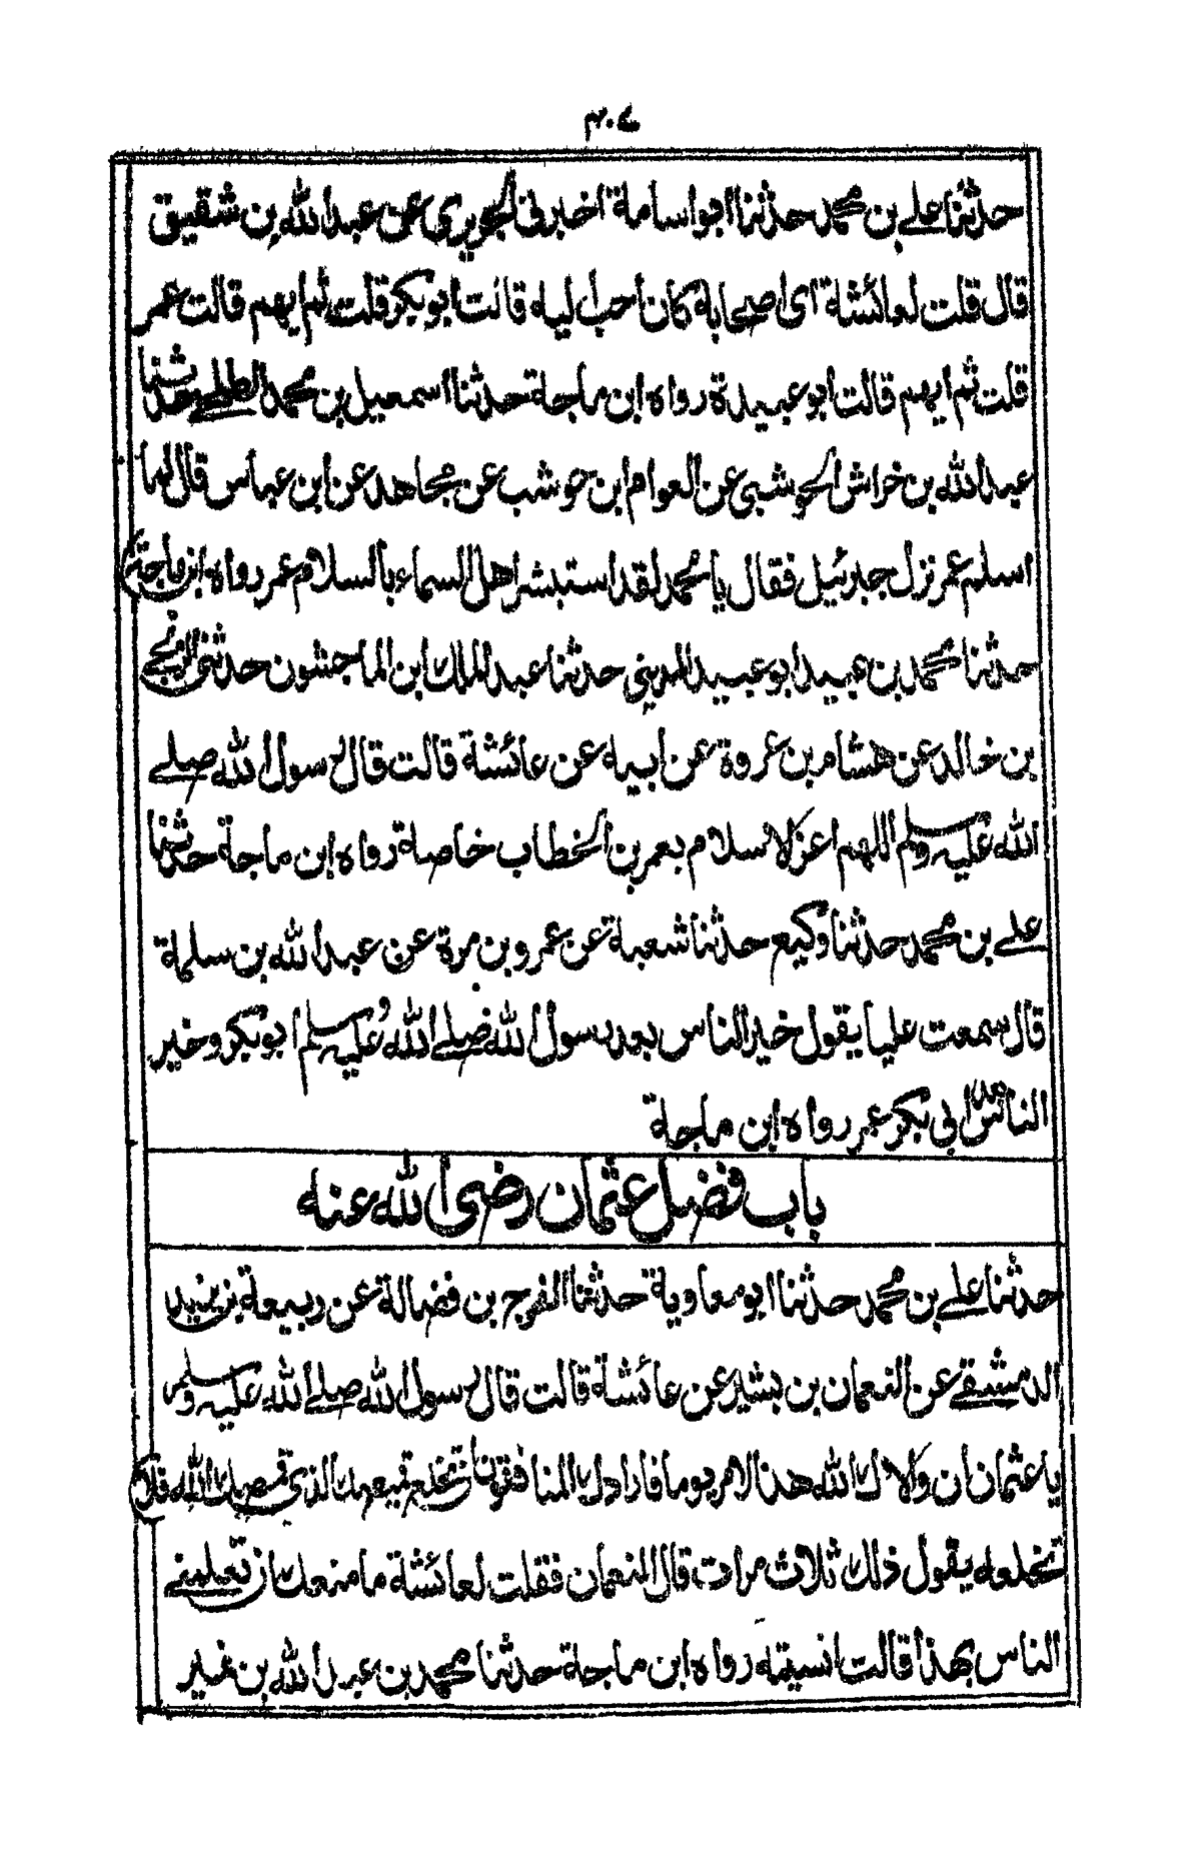 ٣٠٧
حدثنا علي بن محمد حدثنا ابو اسامة اخبرني الجريري عن عبد الله بن شقيق
قال قلت لعائشة اي اصحابه كان احب اليه قالت ابو بكر قلت ثم ايهم قالت عمر
قلت ثم ايهم قالت ابو عبيدة رواه ابن ماجة حدثنا اسمعيل بن محمد الطلحي حدثنا
عبد الله بن خراش الحوشبي عن العوام بن حوشب عن مجاهد عن ابن عباس قال لما
اسلم عمر نزل جبرئيل فقال يا محمد لقد استبشر اهل السماء بالسلام عمر رواه ابن ماجة
حدثنا محمد بن عبيد ابو عبيد المديني حدثنا عبد الملك ابن الماجشون حدثني الزنجي
بن خالد عن هشام بن عروة عن ابيه عن عائشة قالت قال رسول الله صلى
الله عليه وسلم اللهم اعز الاسلام بعمر بن الخطاب خاصة رواه ابن ماجة حدثنا
علي بن محمد حدثنا وكيع حدثنا شعبة عن عمرو بن مرة عن عبد الله بن سلمة
قال سمعت عليا يقول خير الناس بعد رسول الله صلى الله عليه وسلم ابو بكر وخير
الناس بعد ابي بكر عمر رواه ابن ماجة
باب فضل عثمان رضى الله عنه
حدثنا علي بن محمد حدثنا ابو معاوية حدثنا الفرج بن فضالة عن ربيعة بن يزيد
الدمشقي عن النعمان بن بشير عن عائشة قالت قال رسول الله صلى الله عليه وسلم
يا عثمان ان ولاك الله هذا الامر يوما فارادك المنافقون ان تخلع قميصك الذي قمصك الله فلا
تخلعه يقول ذلك ثلاث مرات قال النعمان فقلت لعائشة ما منعك ان تعلمي
الناس بهذا قالت انسيته رواه ابن ماجة حدثنا محمد بن عبد الله بن نمير